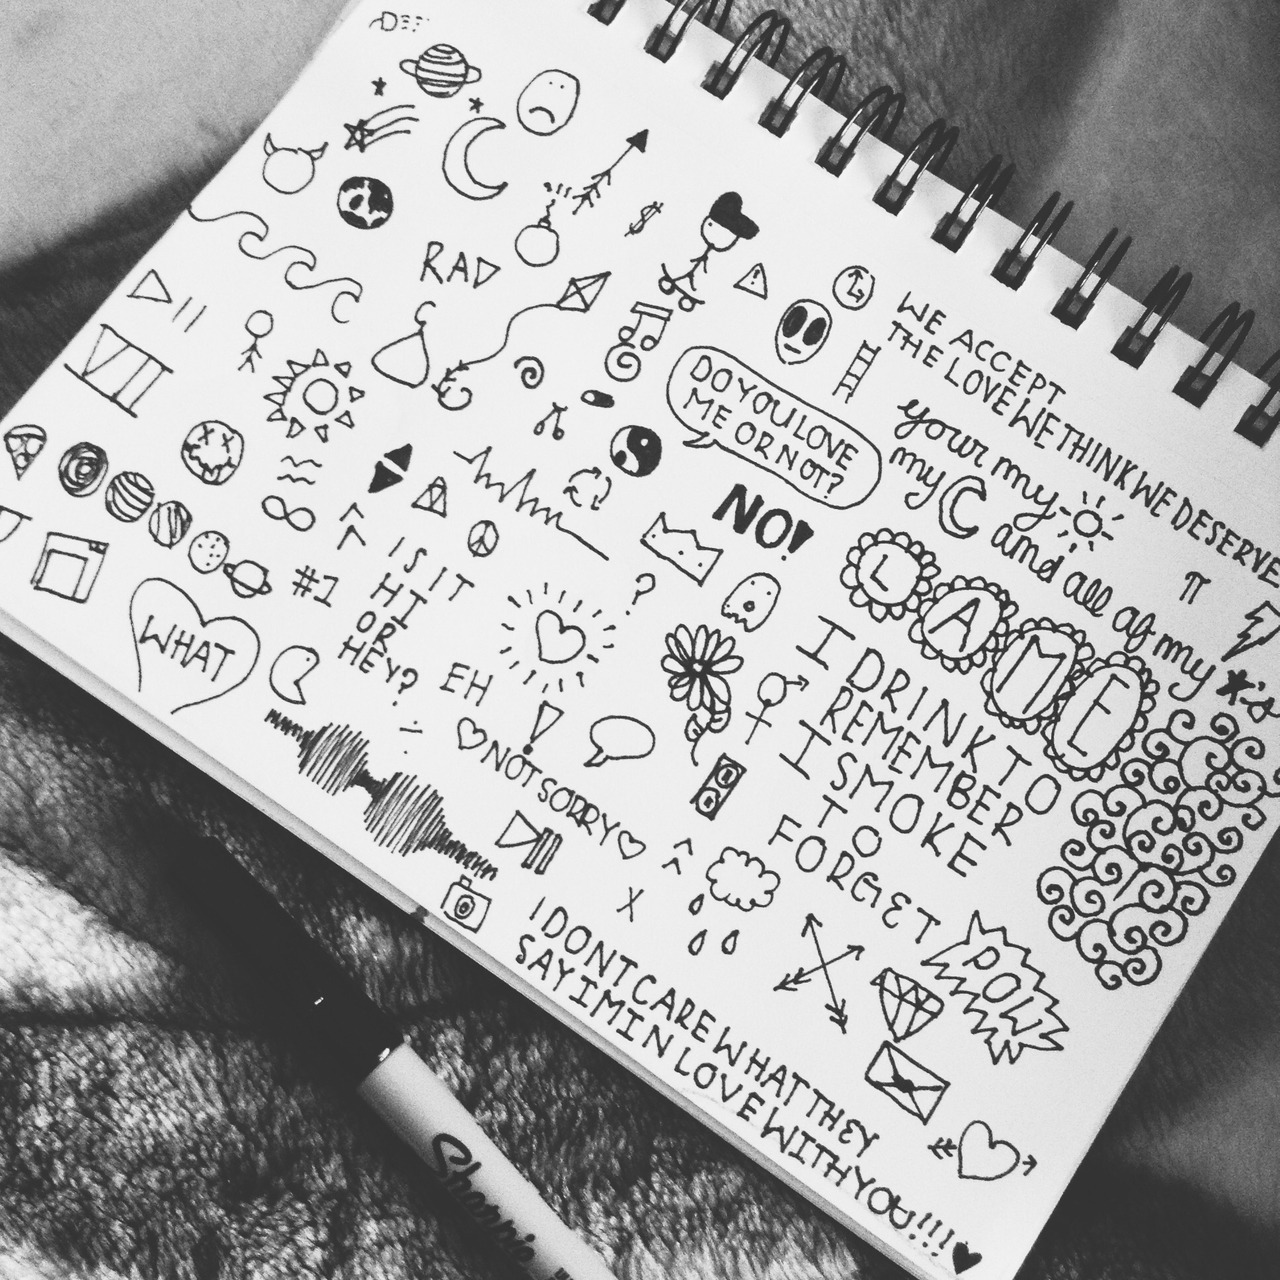 RAD
$
WE ACCEPT
THE LOVE WE THINK WE DESERVE
DO YOU LOVE
ME OR NOT?
NO!
your my
my
and all of my *'s
π
VII
LAME
#1
IS IT
HI
OR
HEY?
EH
?
WHAT
I DRINK TO
REMEMBER
I SMOKE
TO
FORGET
!
÷
♡NOT SORRY♡
X
POW
I DONT CARE WHAT THEY
SAY IM IN LOVE WITH YOU!!!! ♥
Sharpie